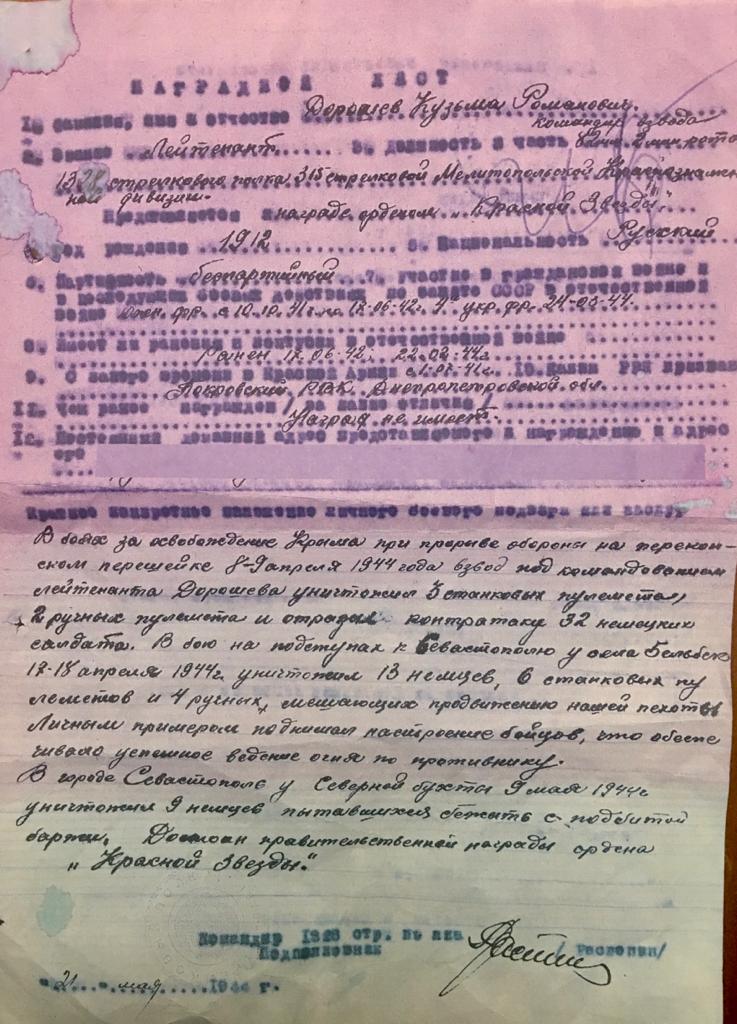 НАГРАДНОЙ ЛИСТ
1. Фамилия, имя и отчество Дорошев Кузьма Романович.
командир взвода
2. Звание Лейтенант 3. Должность и часть
стрелкового полка 315 стрелковой Мелитопольской Краснознамен
ной дивизии.
Представляется к награде орденом „Красной Звезды".
Год рождения 1912 5. Национальность Русский
6. Партийность беспартийный 7. участие в гражданской войне и
в последующих боевых действиях по защите СССР в отечественной
войне Южн. фр. с 10.10.41г. по 17.06.42г. 4й укр. фр. 24-03-44.
8. Имеет ли ранения и контузии в отечественной войне
Ранен 17.06-42г. 22.02-44г.
9. С какого времени в Красной Армии с 1.07.41г. 10. Каким РВК призван
Покровский РВК Днепропетровской обл.
11. Чем ранее награжден /за какие отличия/
Наград не имеет.
12. Постоянный домашний адрес представляемого к награждению и адрес
его
Краткое конкретное изложение личного боевого подвига или заслуг
В боях за освобождение Крыма при прорыве обороны на перекоп-
ском перешейке 8-9 апреля 1944 года взвод под командованием
лейтенанта Дорошева уничтожил 3 станковых пулемета,
2 ручных пулемета и отразил контратаку 32 немецких
солдата. В бою на подступах к Севастополю у села Бельбек
17-18 апреля 1944г. уничтожил 13 немцев, 6 станковых пу
леметов и 4 ручных, мешающих продвижению нашей пехоты
Личным примером поднимал настроение бойцов, что обеспе
чивало успешное ведение огня по противнику.
В городе Севастополе у Северной бухты 9 мая 1944г
уничтожил 9 немцев пытавшихся бежать с подбитой
баржи. Достоин правительственной награды ордена
„Красной Звезды."
Командир 1328 стр. полка
Подполковник /Расторин/
"21" мая 1944 г.